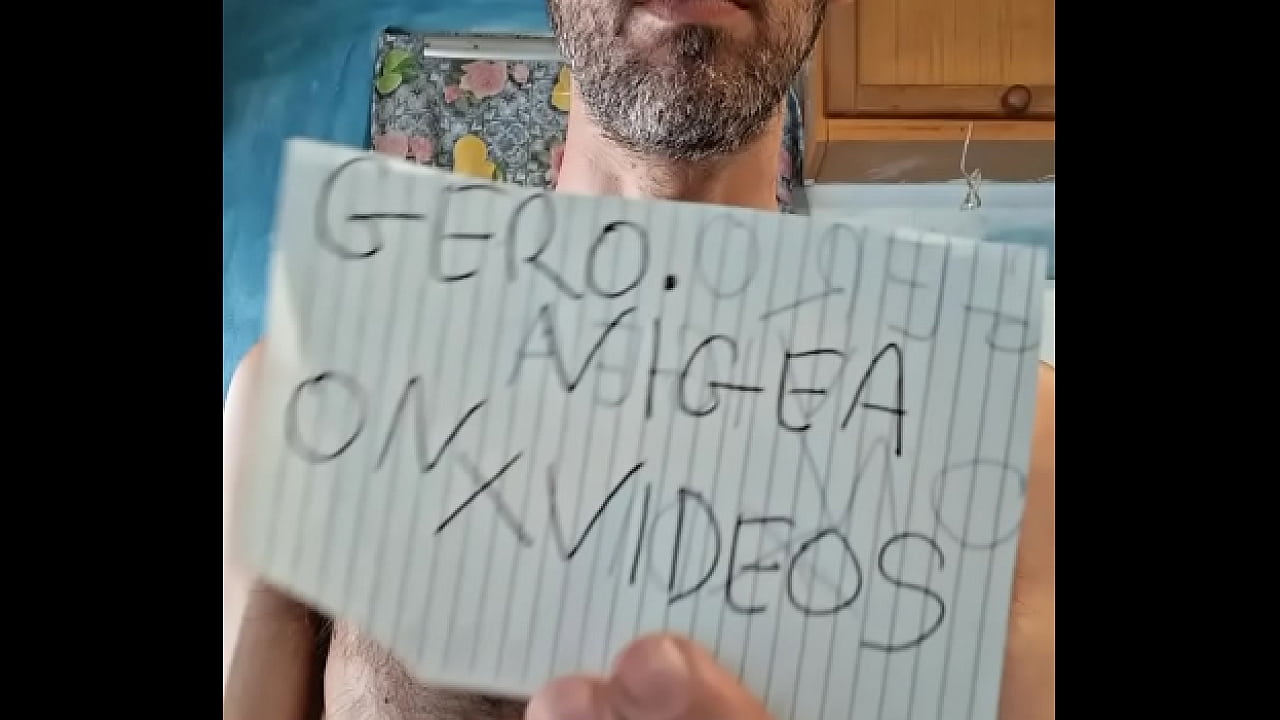 GERO.
NIGEA
ON
XVIDEOS